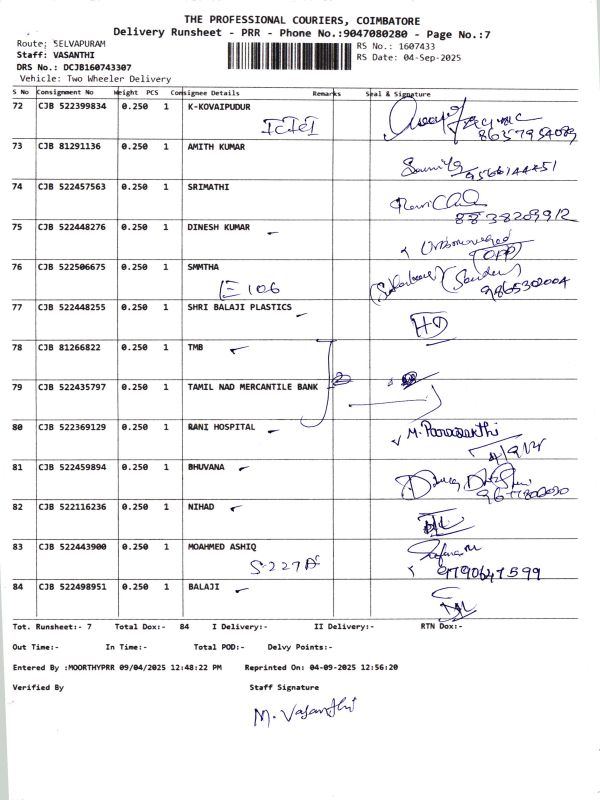 THE PROFESSIONAL COURIERS, COIMBATORE
Delivery Runsheet - PRR - Phone No.:9047080280 - Page No.:7
Route: SELVAPURAM
RS No.: 1607433
Staff: VASANTHI
RS Date: 04-Sep-2025
DRS No.: DCJB160743307
Vehicle: Two Wheeler Delivery
S No Consignment No Weight PCS Consignee Details Remarks Seal & Signature
72 CJB 522399834 0.250 1 K-KOVAIPUDUR
ICICI
73 CJB 81291136 0.250 1 AMITH KUMAR
74 CJB 522457563 0.250 1 SRIMATHI
8838209912
75 CJB 522448276 0.250 1 DINESH KUMAR
76 CJB 522506675 0.250 1 SMMTHA
E 106
9865302004
77 CJB 522448255 0.250 1 SHRI BALAJI PLASTICS
78 CJB 81266822 0.250 1 TMB
2
79 CJB 522435797 0.250 1 TAMIL NAD MERCANTILE BANK
80 CJB 522369129 0.250 1 RANI HOSPITAL
81 CJB 522459894 0.250 1 BHUVANA
82 CJB 522116236 0.250 1 NIHAD
83 CJB 522443900 0.250 1 MOAHMED ASHIQ
9790647599
84 CJB 522498951 0.250 1 BALAJI
Tot. Runsheet:- 7 Total Dox:- 84 I Delivery:- II Delivery:- RTN Dox:-
Out Time:- In Time:- Total POD:- Delvy Points:-
Entered By :MOORTHYPRR 09/04/2025 12:48:22 PM Reprinted On: 04-09-2025 12:56:20
Verified By Staff Signature
M. Vasanthi